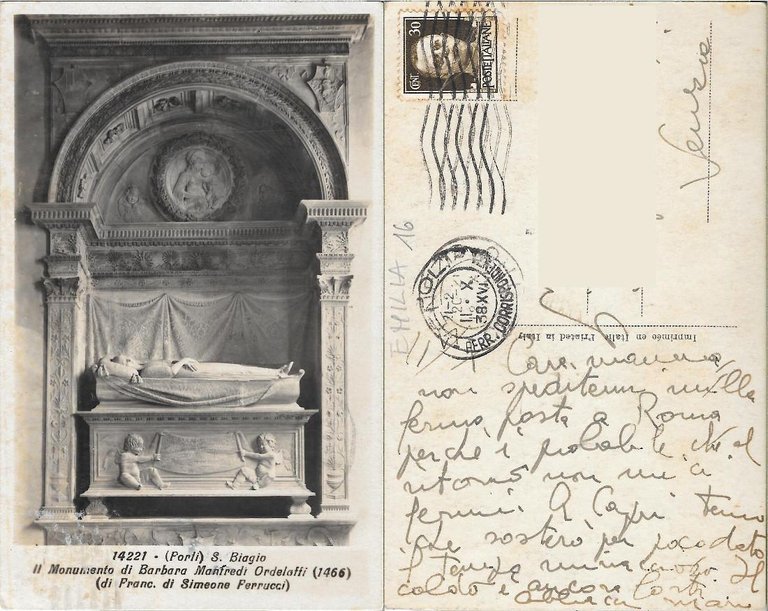 14221 - (Forlì) S. Biagio
Il Monumento di Barbara Manfredi Ordelaffi (1466)
(di Franc. di Simeone Ferrucci)
30
CENT
POSTE ITALIANE
Venezia
EMILIA 16
VENEZIA
FERR. CORRISPOND
38 XVI
Imprimée en Italie Printed in Italy
Cara mamma
non speditemi nulla
fermo posta a Roma
perchè è probabile che al
ritorno non mi ci
fermi. A Capri temo
che sosterò per poco dato
il tempo
caldo è ancora